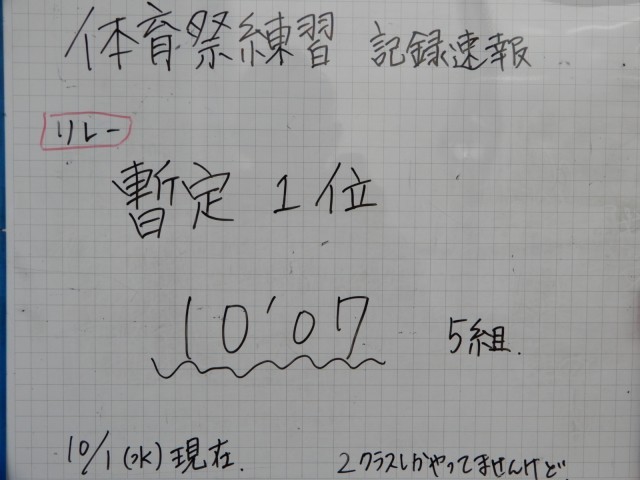 体育祭練習 記録速報
リレー
暫定 1位
10'07 5組.
10/1(水)現在. 2クラスしかやってませんけど